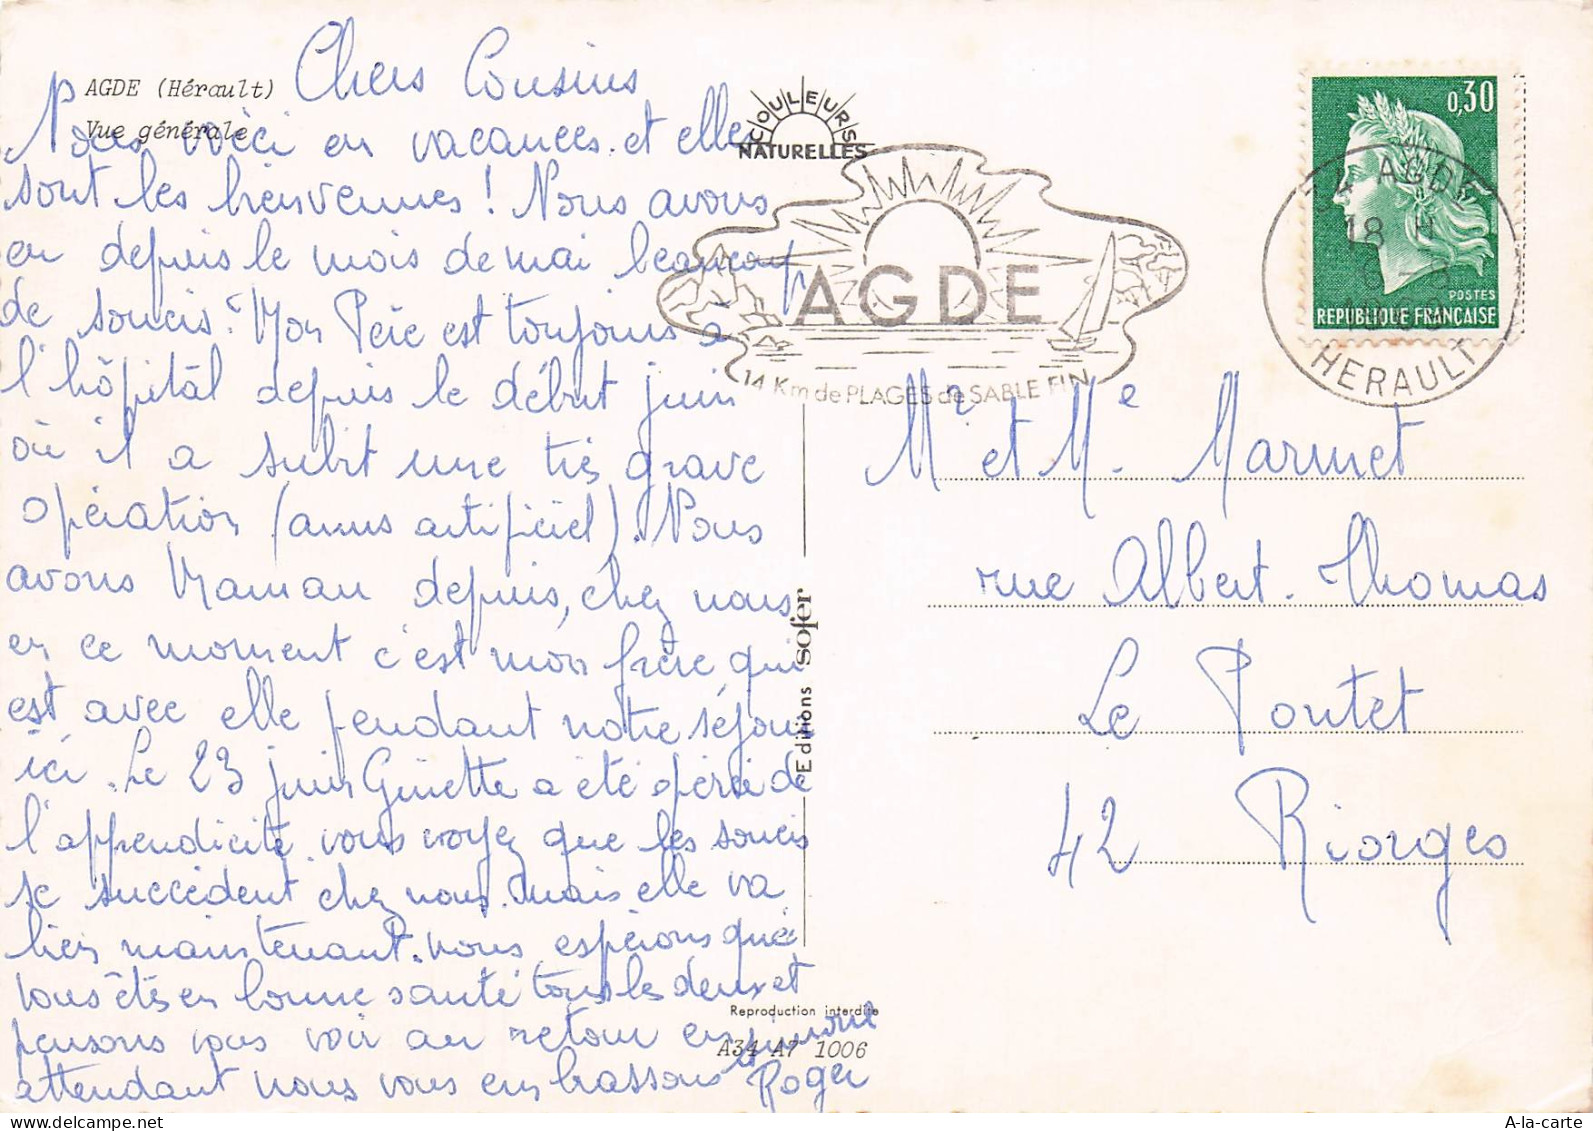 AGDE (Hérault)
Vue générale
Chers Cousins
Nous voici en vacances et elles
sont les bienvenues ! Nous avons
eu depuis le mois de mai beaucoup
de soucis. Mon Père est toujours à
l'hôpital depuis le début juin
où il a subit une très grave
opération (anus artificiel). Nous
avons Maman depuis, chez nous
en ce moment c'est mon frère qui
est avec elle pendant notre séjour
ici. Le 23 juin Ginette a été opérée de
l'appendicite vous voyez que les soucis
se succèdent chez nous. mais elle va
bien maintenant. nous espérons que
vous êtes en bonne santé tous les deux et
pensons vous voir au retour en
attendant nous vous embrassons
Roger
COULEURS
NATURELLES
AGDE
14 Km de PLAGES de SABLE FIN
34 AGDE
18 H
HERAULT
0,30
POSTES
REPUBLIQUE FRANÇAISE
Mr et Me Marmet
rue Albert Thomas
Le Pontet
42 Riorges
Editions sofer
Reproduction interdite
A34 A7 1006
A-la-carte